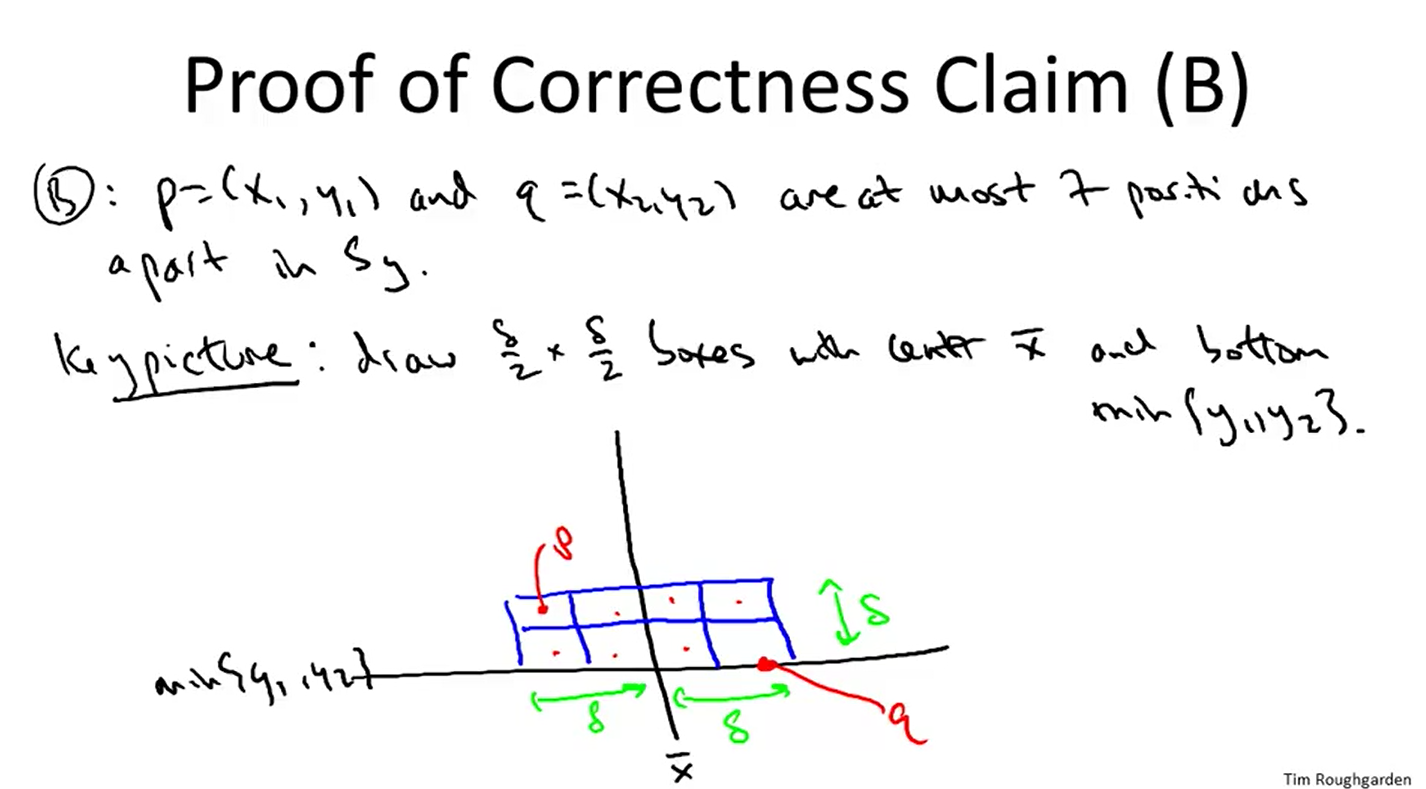 Proof of Correctness Claim (B)
(B): p=(x₁,y₁) and q=(x₂,y₂) are at most 7 positions
apart in Sy.
Key picture: draw δ/2 × δ/2 boxes with center x̄ and bottom
min{y₁,y₂}.
p
δ
min{y₁,y₂}
δ δ
q
x̄
Tim Roughgarden